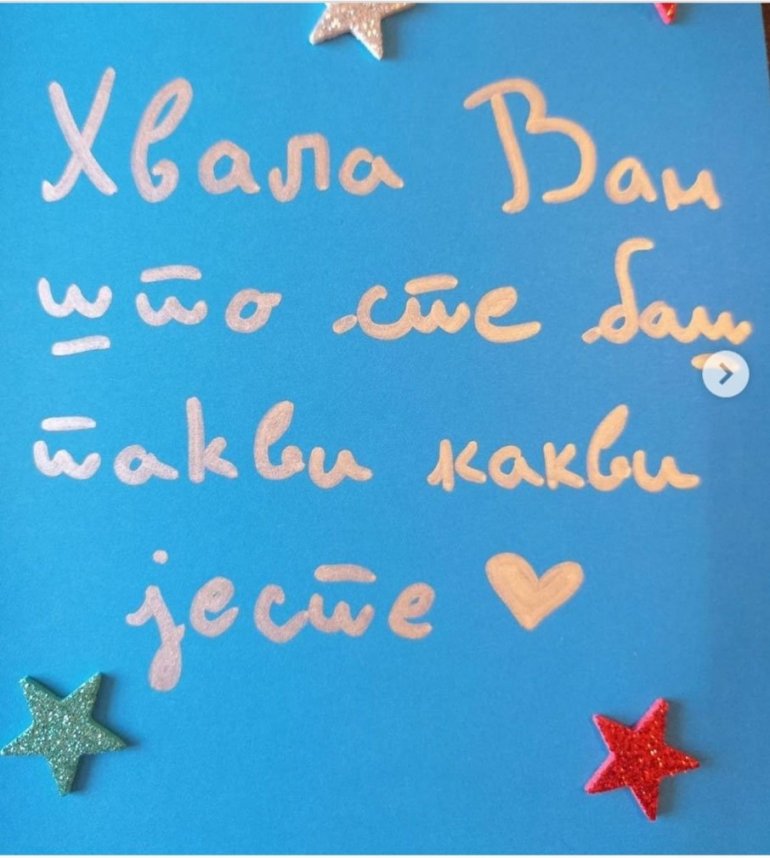 Хвала Вам
што сте баш
такви какви
јесте ♥